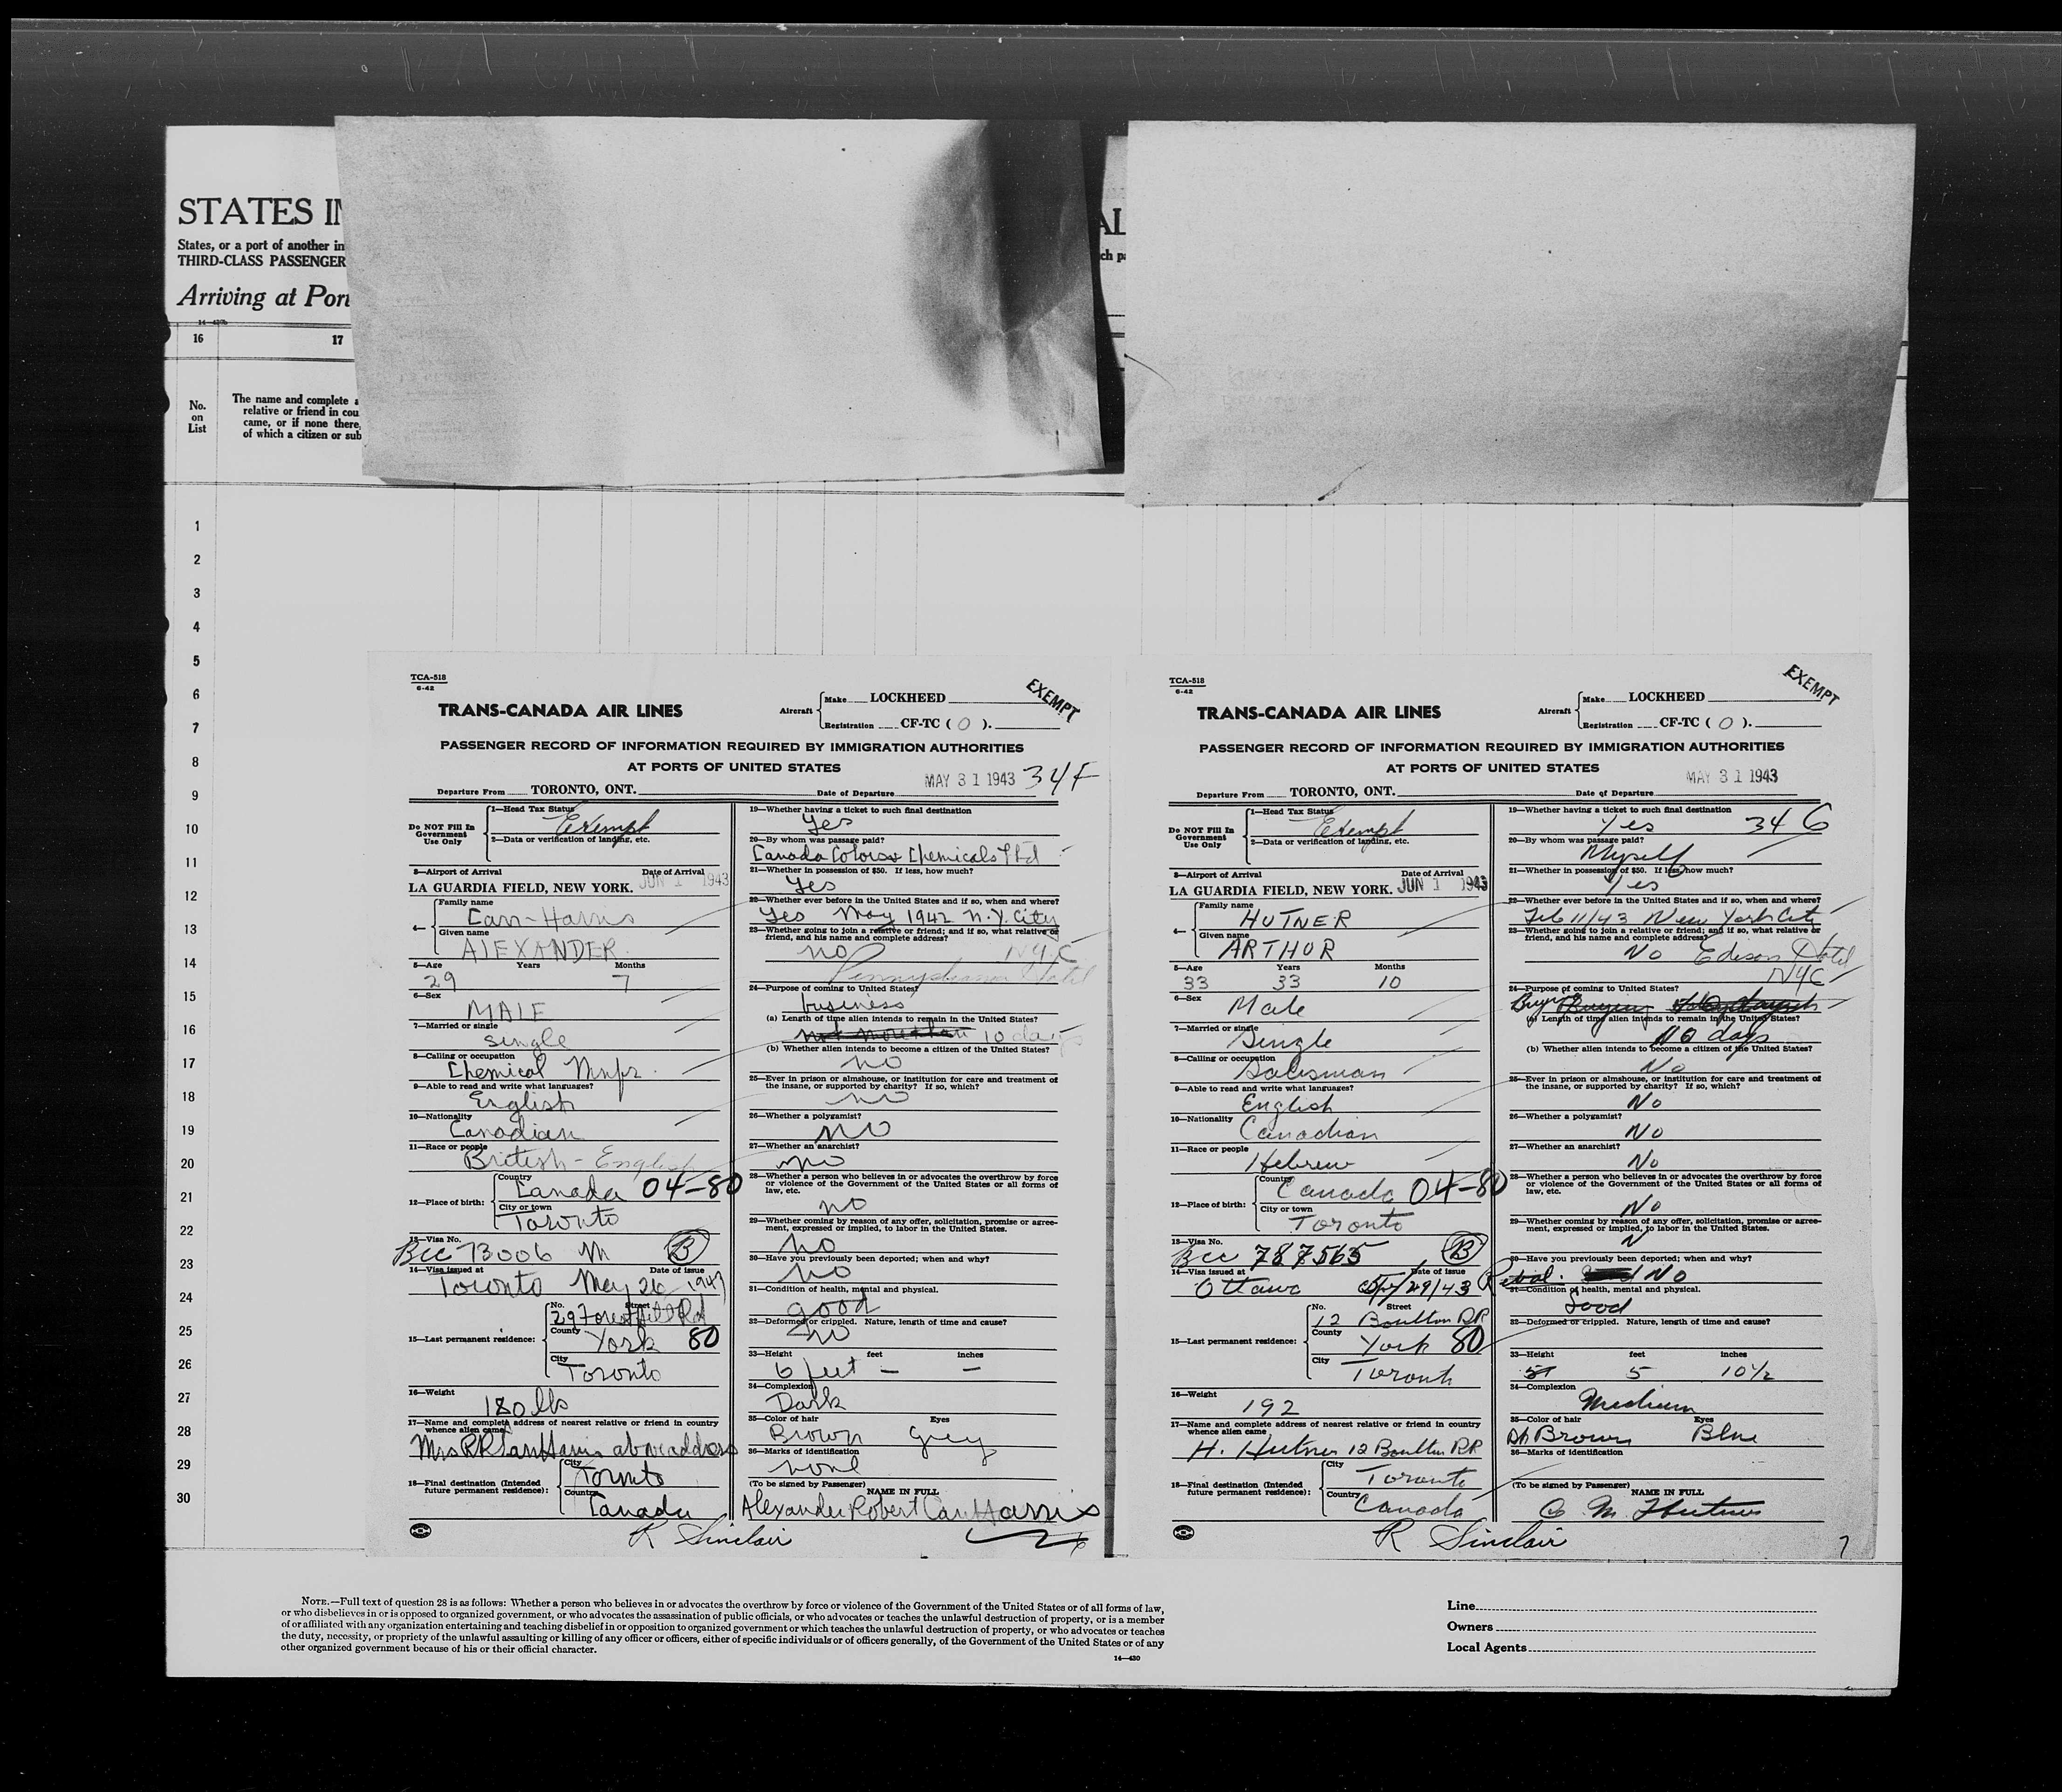 STATES IN
States, or a port of another in
THIRD-CLASS PASSENGER
Arriving at Port
16 17
No. on List
The name and complete a
relative or friend in cou
came, or if none there,
of which a citizen or sub
AL
ch pa
1
2
3
4
5
6
7
8
9
10
11
12
13
14
15
16
17
18
19
20
21
22
23
24
25
26
27
28
29
30
TCA-518
6-42
EXEMPT
TRANS-CANADA AIR LINES
Aircraft Make LOCKHEED
Registration CF-TC ( O ).
PASSENGER RECORD OF INFORMATION REQUIRED BY IMMIGRATION AUTHORITIES
AT PORTS OF UNITED STATES
MAY 31 1943 34F
Departure From TORONTO, ONT. Date of Departure
Do NOT Fill In Government Use Only
1—Head Tax Status
Exempt
2—Data or verification of landing, etc.
3—Airport of Arrival Date of Arrival
LA GUARDIA FIELD, NEW YORK. JUN 1 1943
4— Family name
Carr-Harris
Given name
ALEXANDER
5—Age Years Months
29 7
6—Sex
MALE
7—Married or single
Single
8—Calling or occupation
Chemical Mnfr.
9—Able to read and write what languages?
English
10—Nationality
Canadian
11—Race or people
British - English
12—Place of birth: Country
Canada 04-80
City or town
Toronto
13—Visa No.
Bcc 73006 M B
14—Visa issued at Date of issue
Toronto May 26, 1943
15—Last permanent residence: No. Street
29 Forest Hill Rd
County
York 80
City
Toronto
16—Weight
180 lbs
17—Name and complete address of nearest relative or friend in country
whence alien came
Mrs R.R. Carr Harris above address
18—Final destination (Intended future permanent residence): City
Toronto
Country
Canada
19—Whether having a ticket to such final destination
Yes
20—By whom was passage paid?
Canada Colors & Chemicals Ltd
21—Whether in possession of $50. If less, how much?
Yes
22—Whether ever before in the United States and if so, when and where?
Yes May 1942 N.Y. City
23—Whether going to join a relative or friend; and if so, what relative or
friend, and his name and complete address?
no NYC
Pennsylvania Hotel
24—Purpose of coming to United States?
business
(a) Length of time alien intends to remain in the United States?
10 days
(b) Whether alien intends to become a citizen of the United States?
no
25—Ever in prison or almshouse, or institution for care and treatment of
the insane, or supported by charity? If so, which?
no
26—Whether a polygamist?
no
27—Whether an anarchist?
no
28—Whether a person who believes in or advocates the overthrow by force
or violence of the Government of the United States or all forms of
law, etc.
no
29—Whether coming by reason of any offer, solicitation, promise or agree-
ment, expressed or implied, to labor in the United States.
no
30—Have you previously been deported; when and why?
no
31—Condition of health, mental and physical.
good
32—Deformed or crippled. Nature, length of time and cause?
no
33—Height feet inches
6 feet — —
34—Complexion
Dark
35—Color of hair Eyes
Brown Grey
36—Marks of identification
none
(To be signed by Passenger) NAME IN FULL
Alexander Robert Carr Harris
R Sinclair 6
TCA-518
6-42
EXEMPT
TRANS-CANADA AIR LINES
Aircraft Make LOCKHEED
Registration CF-TC ( O ).
PASSENGER RECORD OF INFORMATION REQUIRED BY IMMIGRATION AUTHORITIES
AT PORTS OF UNITED STATES
MAY 31 1943
Departure From TORONTO, ONT. Date of Departure
Do NOT Fill In Government Use Only
1—Head Tax Status
Exempt
2—Data or verification of landing, etc.
3—Airport of Arrival Date of Arrival
LA GUARDIA FIELD, NEW YORK. JUN 1 1943
4— Family name
HUTNER
Given name
ARTHUR
5—Age Years Months
33 33 10
6—Sex
Male
7—Married or single
Single
8—Calling or occupation
Salesman
9—Able to read and write what languages?
English
10—Nationality
Canadian
11—Race or people
Hebrew
12—Place of birth: Country
Canada 04-80
City or town
Toronto
13—Visa No.
Bcc 787565 B
14—Visa issued at Date of issue
Ottawa /29/43 Reval.
15—Last permanent residence: No. Street
12 Boulton DR
County
York 80
City
Toronto
16—Weight
192
17—Name and complete address of nearest relative or friend in country
whence alien came
H. Hutner 12 Boulton DR
18—Final destination (Intended future permanent residence): City
Toronto
Country
Canada
19—Whether having a ticket to such final destination
Yes 34 G
20—By whom was passage paid?
Myself
21—Whether in possession of $50. If less, how much?
Yes
22—Whether ever before in the United States and if so, when and where?
Feb 11/43 New York City
23—Whether going to join a relative or friend; and if so, what relative or
friend, and his name and complete address?
No Edison Hotel
NYC
24—Purpose of coming to United States?
Buying
(a) Length of time alien intends to remain in the United States?
10 days
(b) Whether alien intends to become a citizen of the United States?
No
25—Ever in prison or almshouse, or institution for care and treatment of
the insane, or supported by charity? If so, which?
No
26—Whether a polygamist?
No
27—Whether an anarchist?
No
28—Whether a person who believes in or advocates the overthrow by force
or violence of the Government of the United States or all forms of
law, etc.
No
29—Whether coming by reason of any offer, solicitation, promise or agree-
ment, expressed or implied, to labor in the United States.
N
30—Have you previously been deported; when and why?
No
31—Condition of health, mental and physical.
Good
32—Deformed or crippled. Nature, length of time and cause?
33—Height feet inches
5 10½
34—Complexion
Medium
35—Color of hair Eyes
Dk Brown Blue
36—Marks of identification
(To be signed by Passenger) NAME IN FULL
M. Hutner
R Sinclair 7
NOTE.—Full text of question 28 is as follows: Whether a person who believes in or advocates the overthrow by force or violence of the Government of the United States or of all forms of law,
or who disbelieves in or is opposed to organized government, or who advocates the assassination of public officials, or who advocates or teaches the unlawful destruction of property, or is a member
of or affiliated with any organization entertaining and teaching disbelief in or opposition to organized government or which teaches the unlawful destruction of property, or who advocates or teaches
the duty, necessity, or propriety of the unlawful assaulting or killing of any officer or officers, either of specific individuals or of officers generally, of the Government of the United States or of any
other organized government because of his or their official character.
14—430
Line
Owners
Local Agents